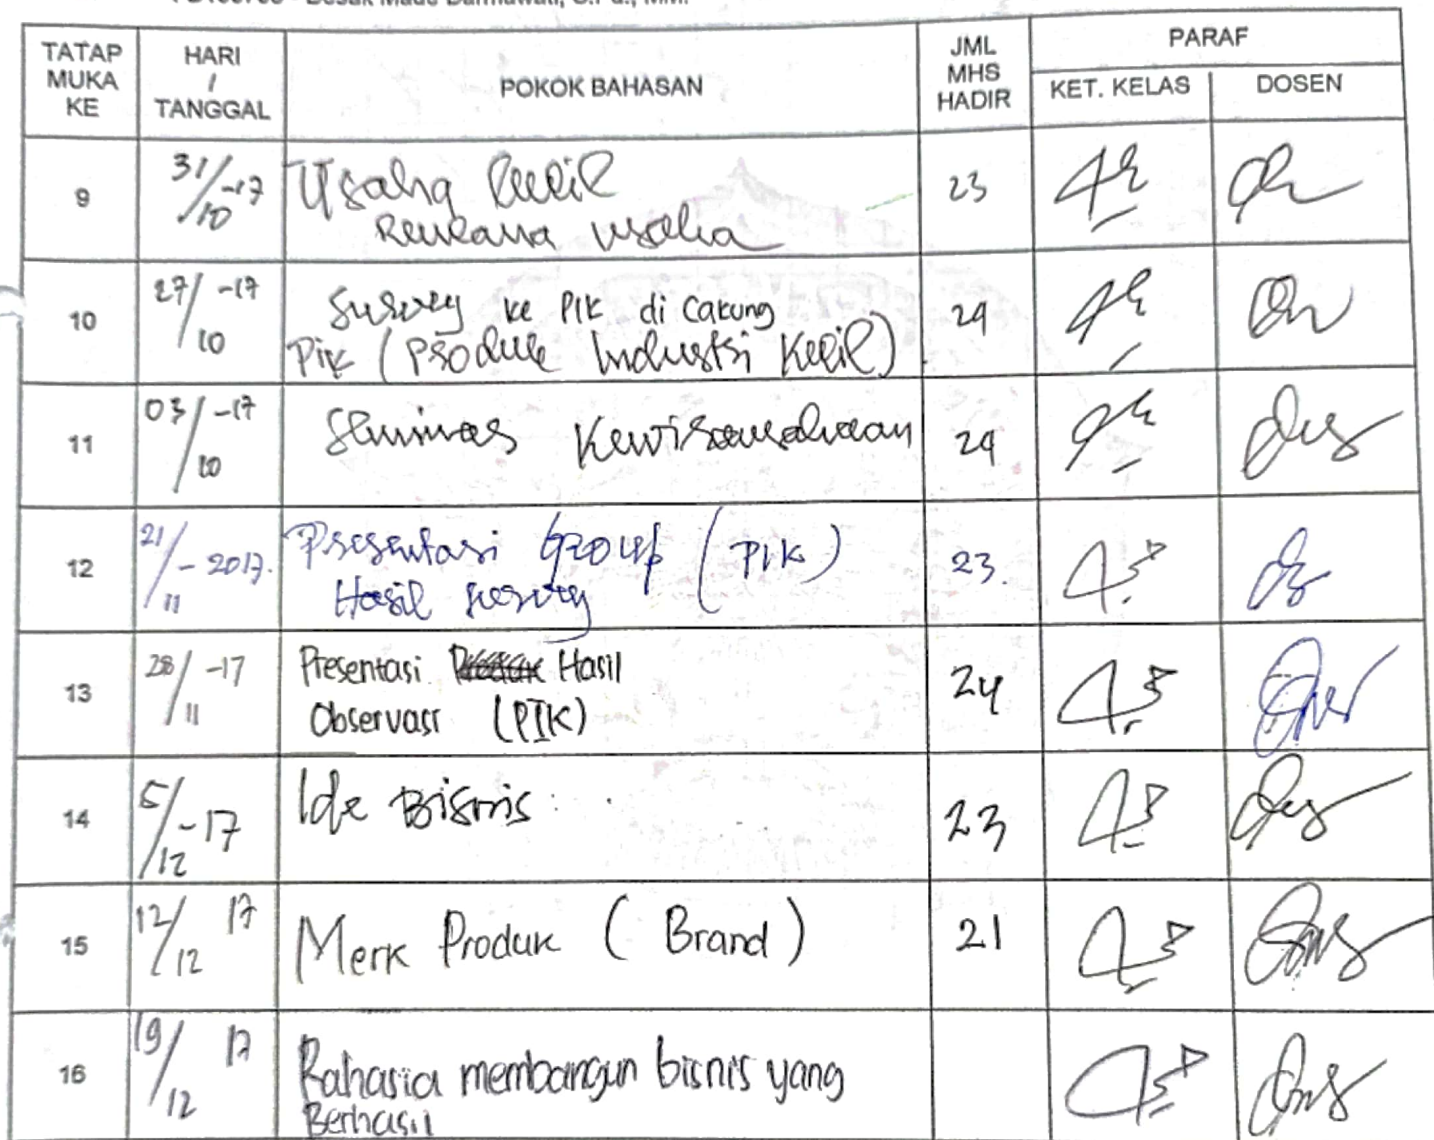 TATAP MUKA KE
HARI / TANGGAL
POKOK BAHASAN
JML MHS HADIR
PARAF
KET. KELAS
DOSEN
9
31/10-17
Usaha Kecil
Rencana usaha
23
10
27/10-17
Survey ke PIK di Cakung
PIK (Produk Industri Kecil)
24
11
03/10-17
Seminar Kewirausahaan
24
12
21/11-2017.
Presentasi Group (PIK)
Hasil survey
23.
13
28/11-17
Presentasi Hasil
Observasi (PIK)
24
14
5/12-17
Ide Bisnis :
23
15
12/12 17
Merk Produk (Brand)
21
16
19/12 17
Rahasia membangun bisnis yang
Berhasil